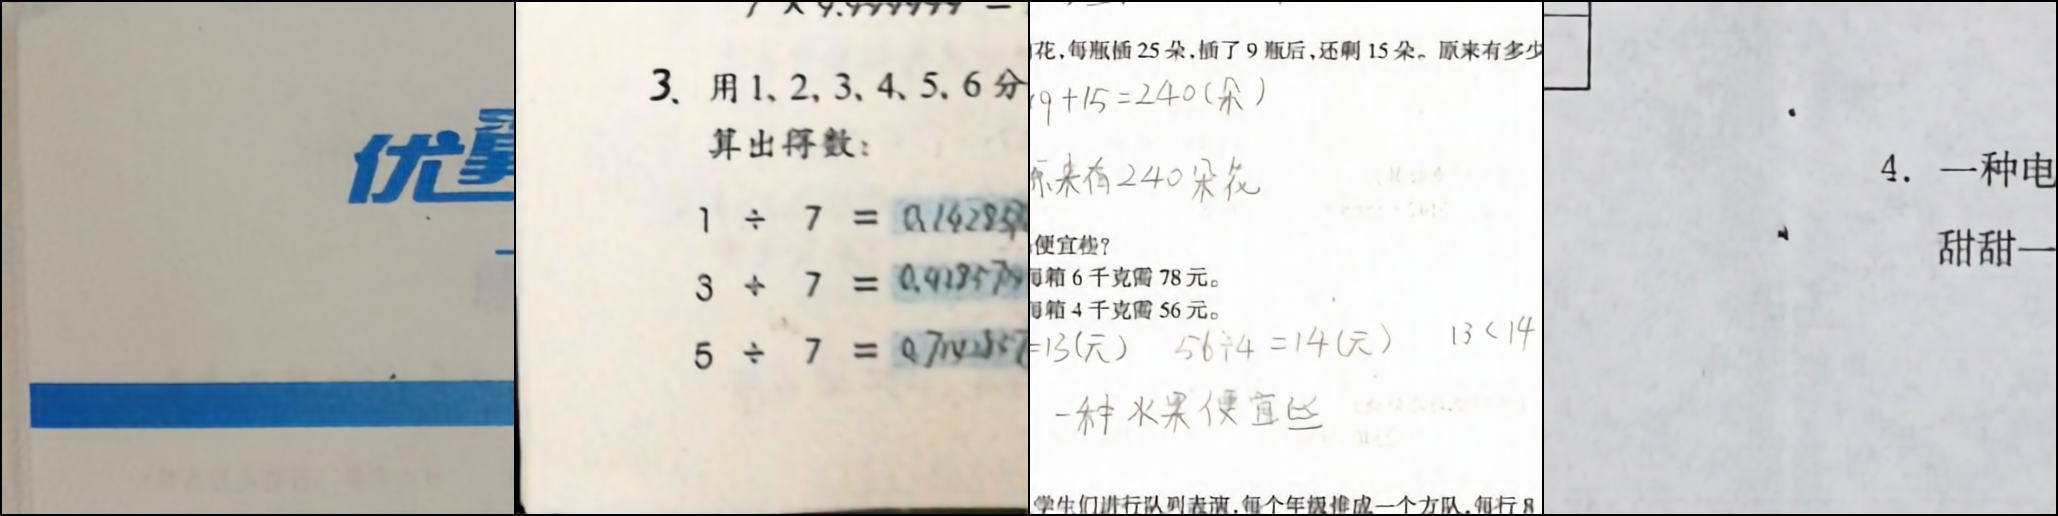 优翼
7 × 9.999999 =
3、用1、2、3、4、5、6分
算出得数：
1 ÷ 7 = 0.142857
3 ÷ 7 = 0.42857
5 ÷ 7 = 0.7142857
花，每瓶插25朵，插了9瓶后，还剩15朵。原来有多少
9+15=240(朵)
原来有240朵花
便宜些?
每箱6千克需78元。
每箱4千克需56元。
=13(元) 56÷4=14(元) 13<14
一种水果便宜些
学生们进行队列表演，每个年级排成一个方队，每行8
4. 一种电
甜甜一